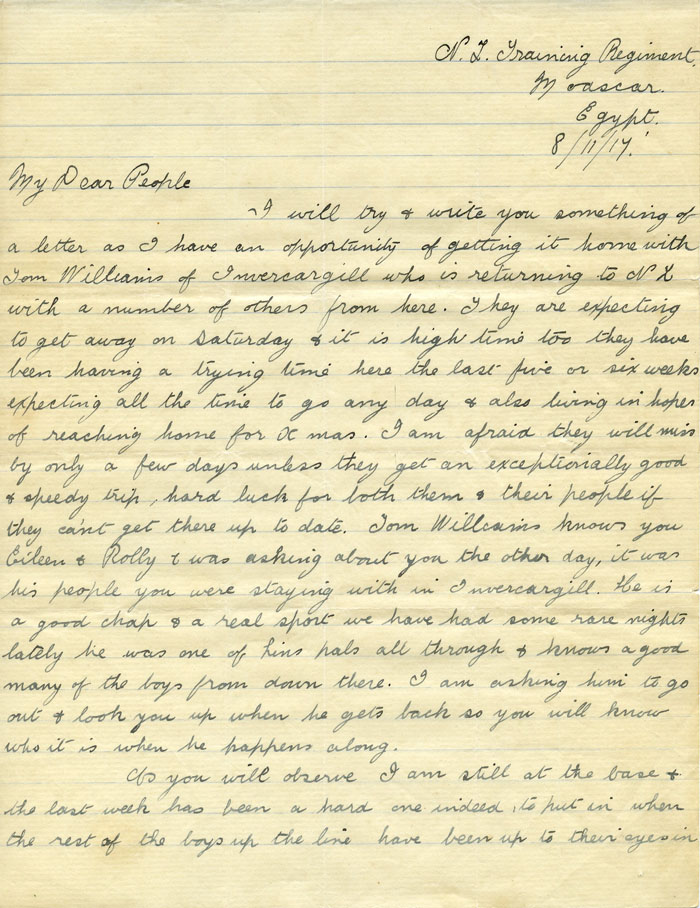 N. Z. Training Regiment,
Moascar.
Egypt.
8/11/17.
My Dear People
I will try & write you something of
a letter as I have an opportunity of getting it home with
Tom Williams of Invercargill who is returning to N Z
with a number of others from here. They are expecting
to get away on Saturday & it is high time too they have
been having a trying time here the last five or six weeks
expecting all the time to go any day & also living in hopes
of reaching home for X mas. I am afraid they will miss
by only a few days unless they get an exceptionally good
& speedy trip, hard luck for both them & their people if
they can't get there up to date. Tom Williams knows you
Eileen & Rolly & was asking about you the other day, it was
his people you were staying with in Invercargill. He is
a good chap & a real sport we have had some rare nights
lately he was one of Lins pals all through & knows a good
many of the boys from down there. I am asking him to go
out & look you up when he gets back so you will know
who it is when he happens along.
As you will observe I am still at the base &
the last week has been a hard one indeed to put in when
the rest of the boys up the line have been up to their eyes in